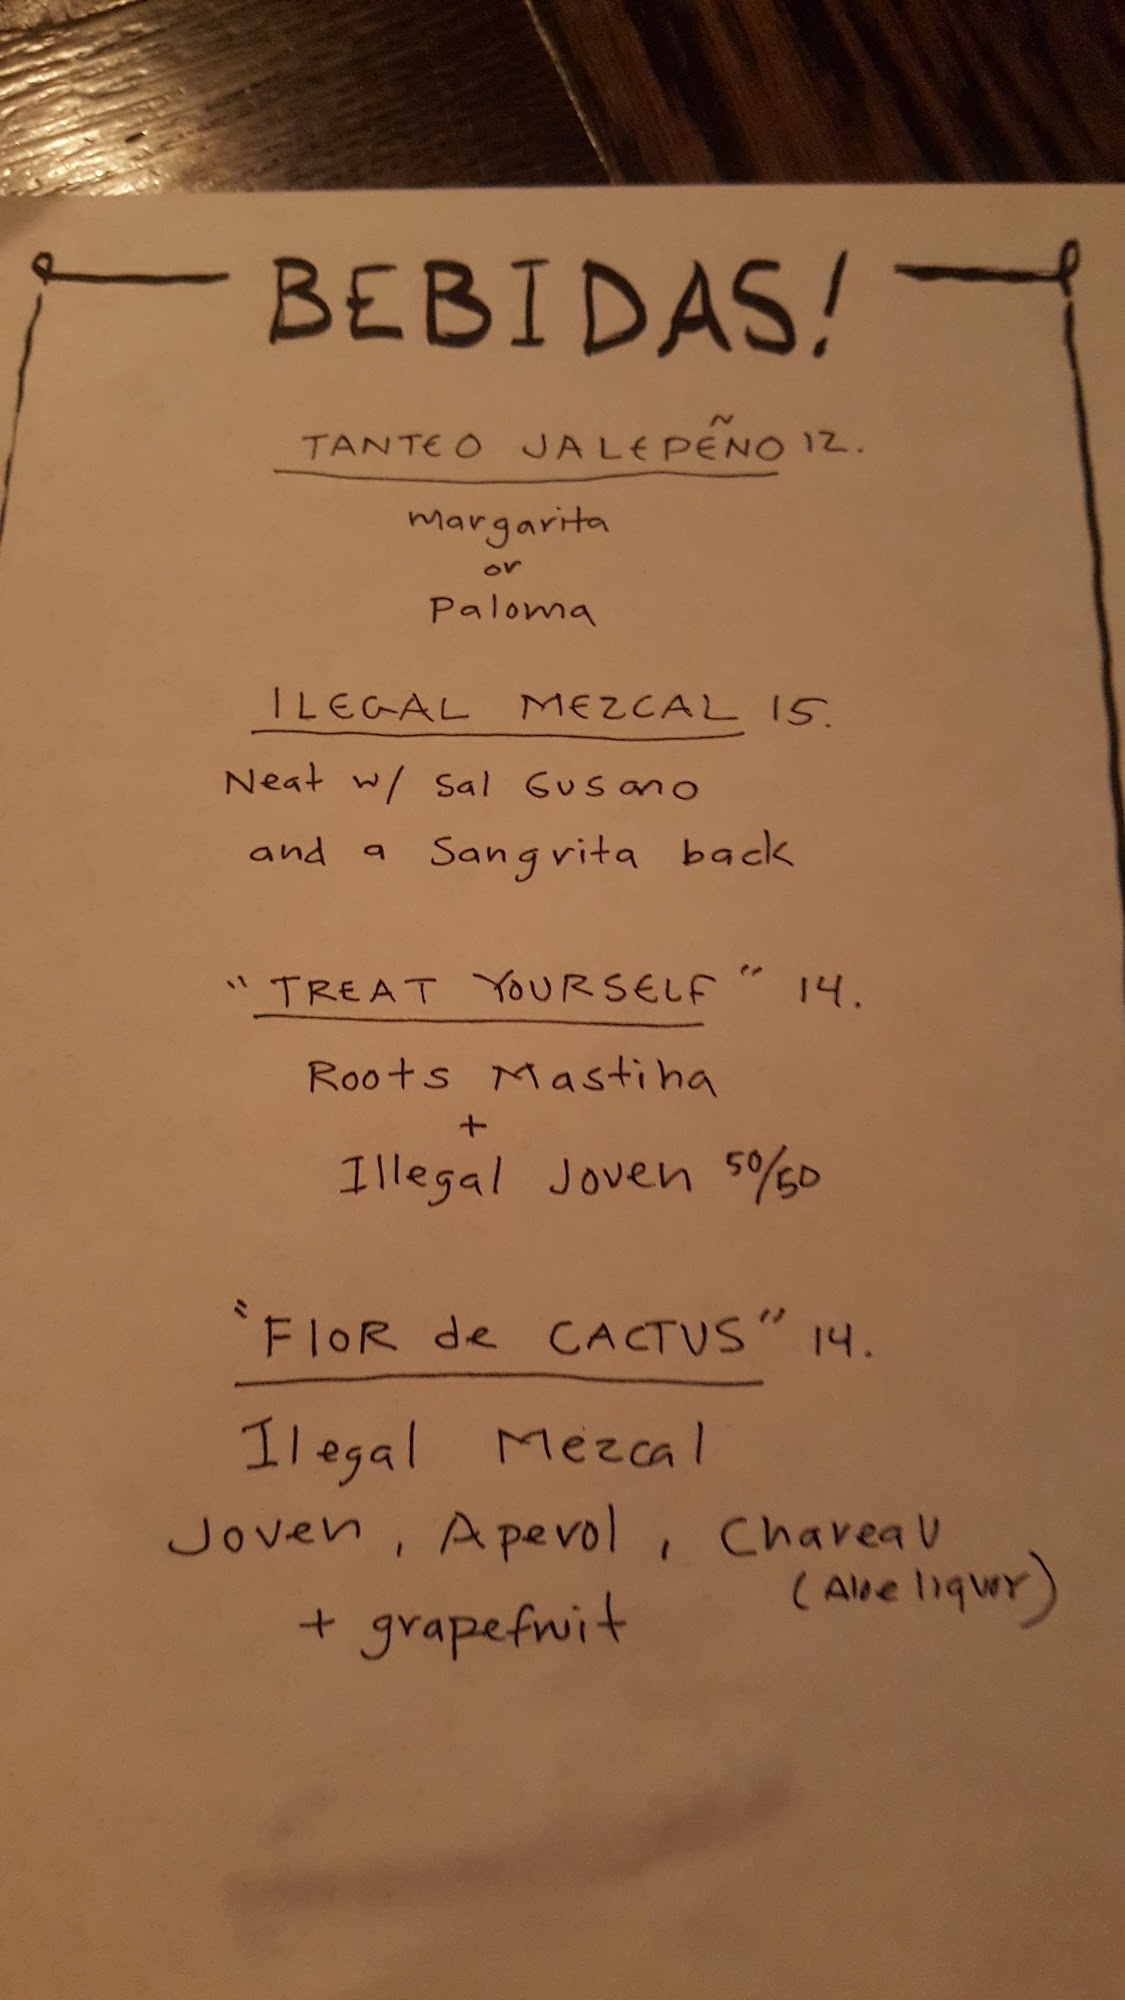 BEBIDAS!
TANTEO JALEPEÑO 12.
Margarita
or
Paloma
ILEGAL MEZCAL 15.
Neat w/ Sal Gusano
and a Sangrita back
"TREAT YOURSELF" 14.
Roots Mastiha
+
Illegal Joven 50/50
"FlOR de CACTUS" 14.
Ilegal Mezcal
Joven, Aperol, Chareau
(Aloe liquor)
+ grapefruit